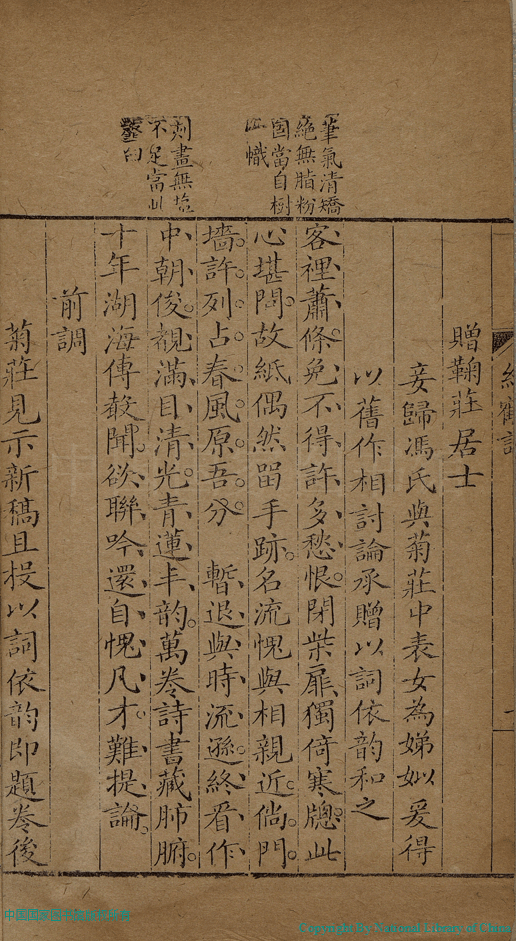 筆氣清矯
絶無脂粉
固當自樹
一幟
刻畫無鹽
不足當此
贈鞠莊居士
妾歸馮氏與菊莊中表女為娣姒爰得
以舊作相討論承贈以詞依韵和之
客裡蕭條免不得許多愁恨閉柴扉獨倚寒牕此
心堪問故紙偶然畱手跡名流愧與相親近倘門
墻許列占春風原吾分　暫退與時流遜終看作
中朝俊覩滿目清光青蓮丰韵萬卷詩書藏肺腑
十年湖海傳聞欲聯吟還自愧凡才難提論
前調
菊莊見示新稿且投以詞依韵即題卷後
Copyright by National Library of China